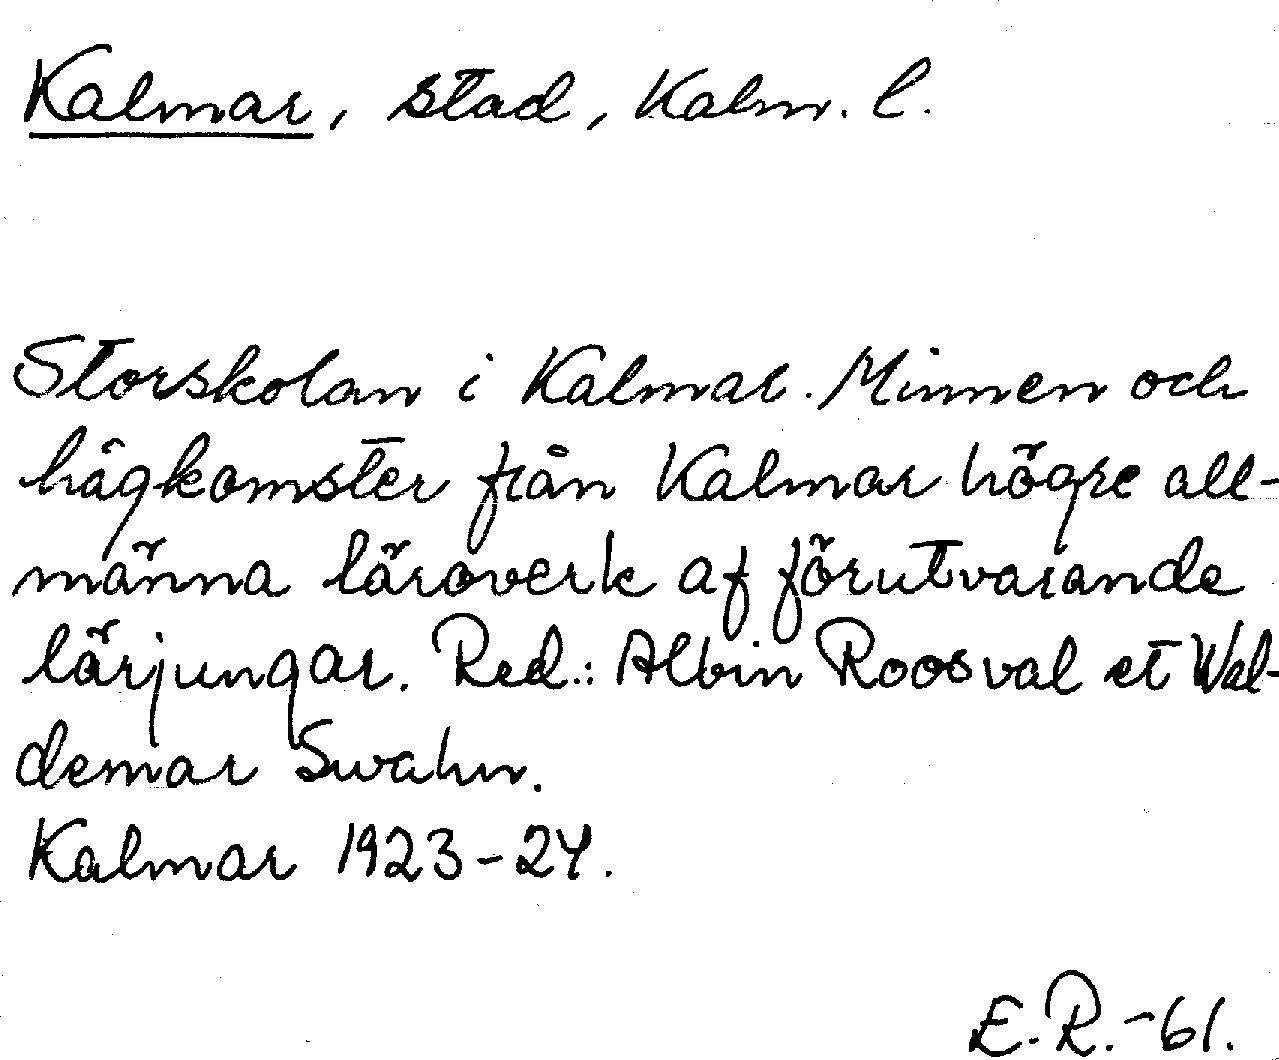 Kalmar, stad, Kalm. l.
Storskolan i Kalmar. Minnen och
hågkomster från Kalmar högre all-
männa läroverk af förutvarande
lärjungar. Red.: Albin Roosval et Wal-
demar Swahn.
Kalmar 1923-24.
E.R.-61.